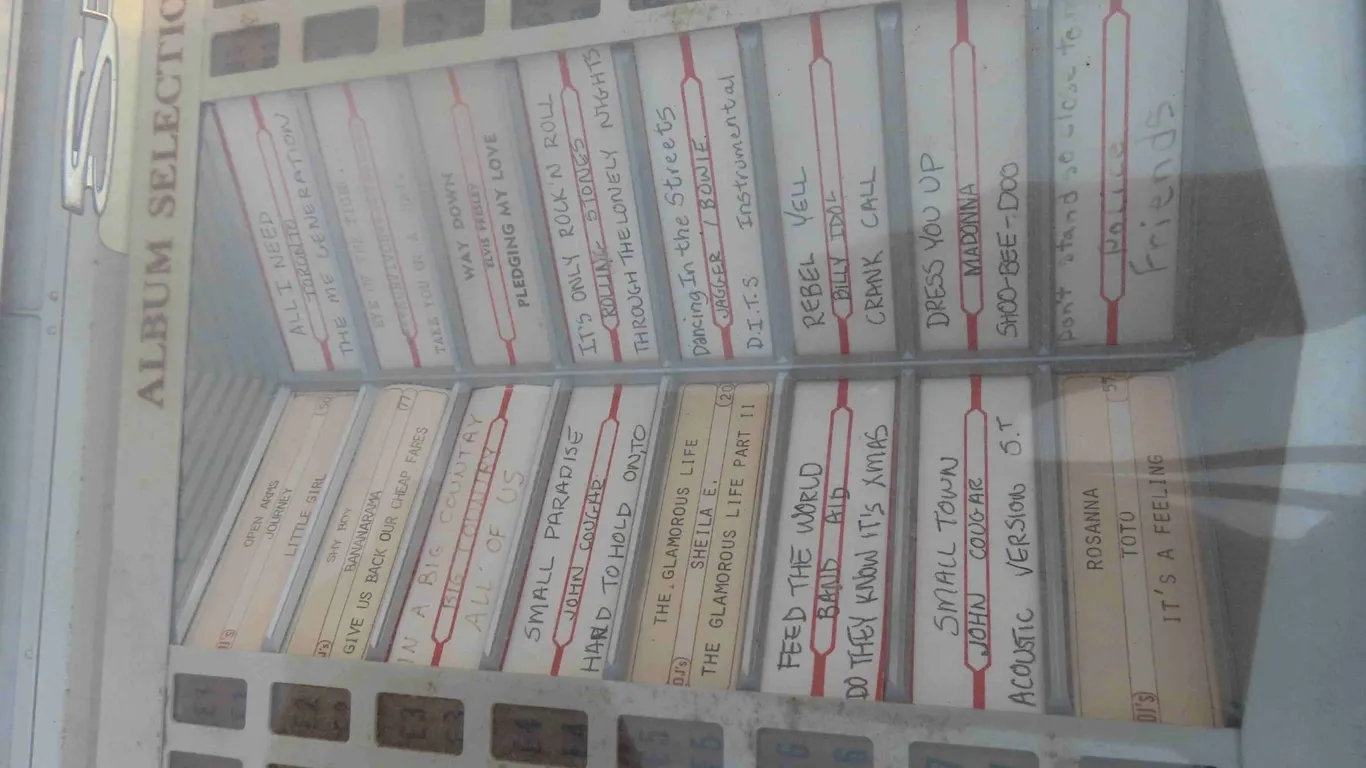 ALBUM SELECTIO
OPEN ARMS
JOURNEY
LITTLE GIRL
SHY BOY
BANANARAMA
GIVE US BACK OUR CHEAP FARES
DJ's
77
IN A BIG COUNTRY
BIG COUNTRY
ALL OF US
SMALL PARADISE
JOHN COUGAR
HAND TO HOLD ON,TO
THE GLAMOROUS LIFE
SHEILA E.
THE GLAMOROUS LIFE PART II
DJ's
20
FEED THE WORLD
BAND AID
DO THEY KNOW IT'S XMAS
SMALL TOWN
JOHN COUGAR
ACOUSTIC VERSION S.T
ROSANNA
TOTO
IT'S A FEELING
DJ's
ALL I NEED
TORONTO
THE ME GENERATION
EYE OF THE TIGER
SURVIVOR
TAKE YOU ON A
WAY DOWN
ELVIS PRESLEY
PLEDGING MY LOVE
IT'S ONLY ROCK'N ROLL
ROLLING STONES
THROUGH THE LONELY NIGHTS
Dancing In the Streets
JAGGER / BOWIE
D.I.T.S Instrumental
REBEL YELL
BILLY IDOL
CRANK CALL
DRESS YOU UP
MADONNA
SHOO-BEE-DOO
Dont stand so close to
Police
Friends
E2
E3
E4